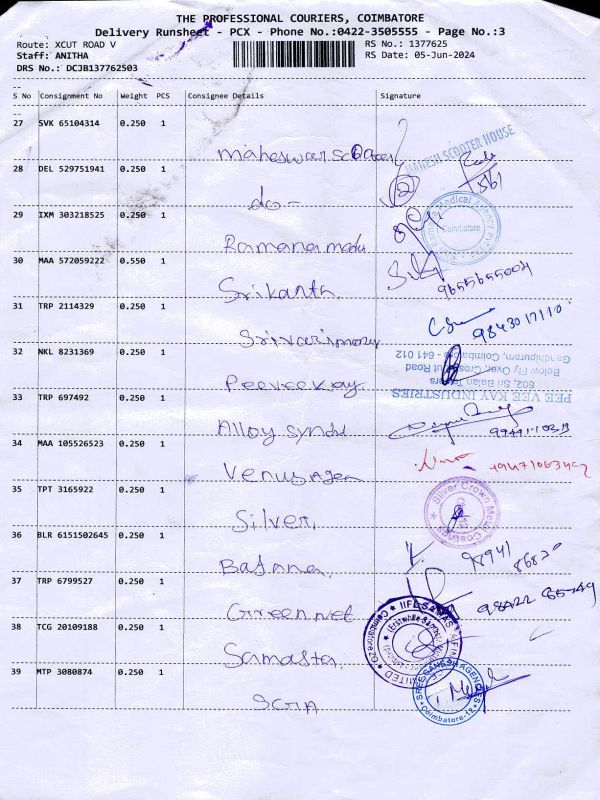 THE PROFESSIONAL COURIERS, COIMBATORE
Delivery Runsheet - PCX - Phone No.:0422-3505555 - Page No.:3
Route: XCUT ROAD V
RS No.: 1377625
Staff: ANITHA
RS Date: 05-Jun-2024
DRS No.: DCJB137762503
S No Consignment No Weight PCS Consignee Details Signature
27 SVK 65104314 0.250 1
MAHESH SCOOTER HOUSE
28 DEL 529751941 0.250 1
do -
29 IXM 303218525 0.250 1
Coimbatore
Ramana
30 MAA 572059222 0.550 1
Srikanth
9655655004
31 TRP 2114329 0.250 1
9843017110
32 NKL 8231369 0.250 1
Peeveekay
PEE VEE KAY INDUSTRIES
602, Sri Balan Towers
Below Fly Over, Cross Cut Road
Gandhipuram, Coimbatore - 641 012
33 TRP 697492 0.250 1
Alloy
34 MAA 105526523 0.250 1
Venus Agen
35 TPT 3165922 0.250 1
Silver Crown Metal Coatings
Silver
36 BLR 6151502645 0.250 1
98941
37 TRP 6799527 0.250 1
Greennet
98422 65749
38 TCG 20109188 0.250 1
Samasta
39 MTP 3080874 0.250 1
Coimbatore-12